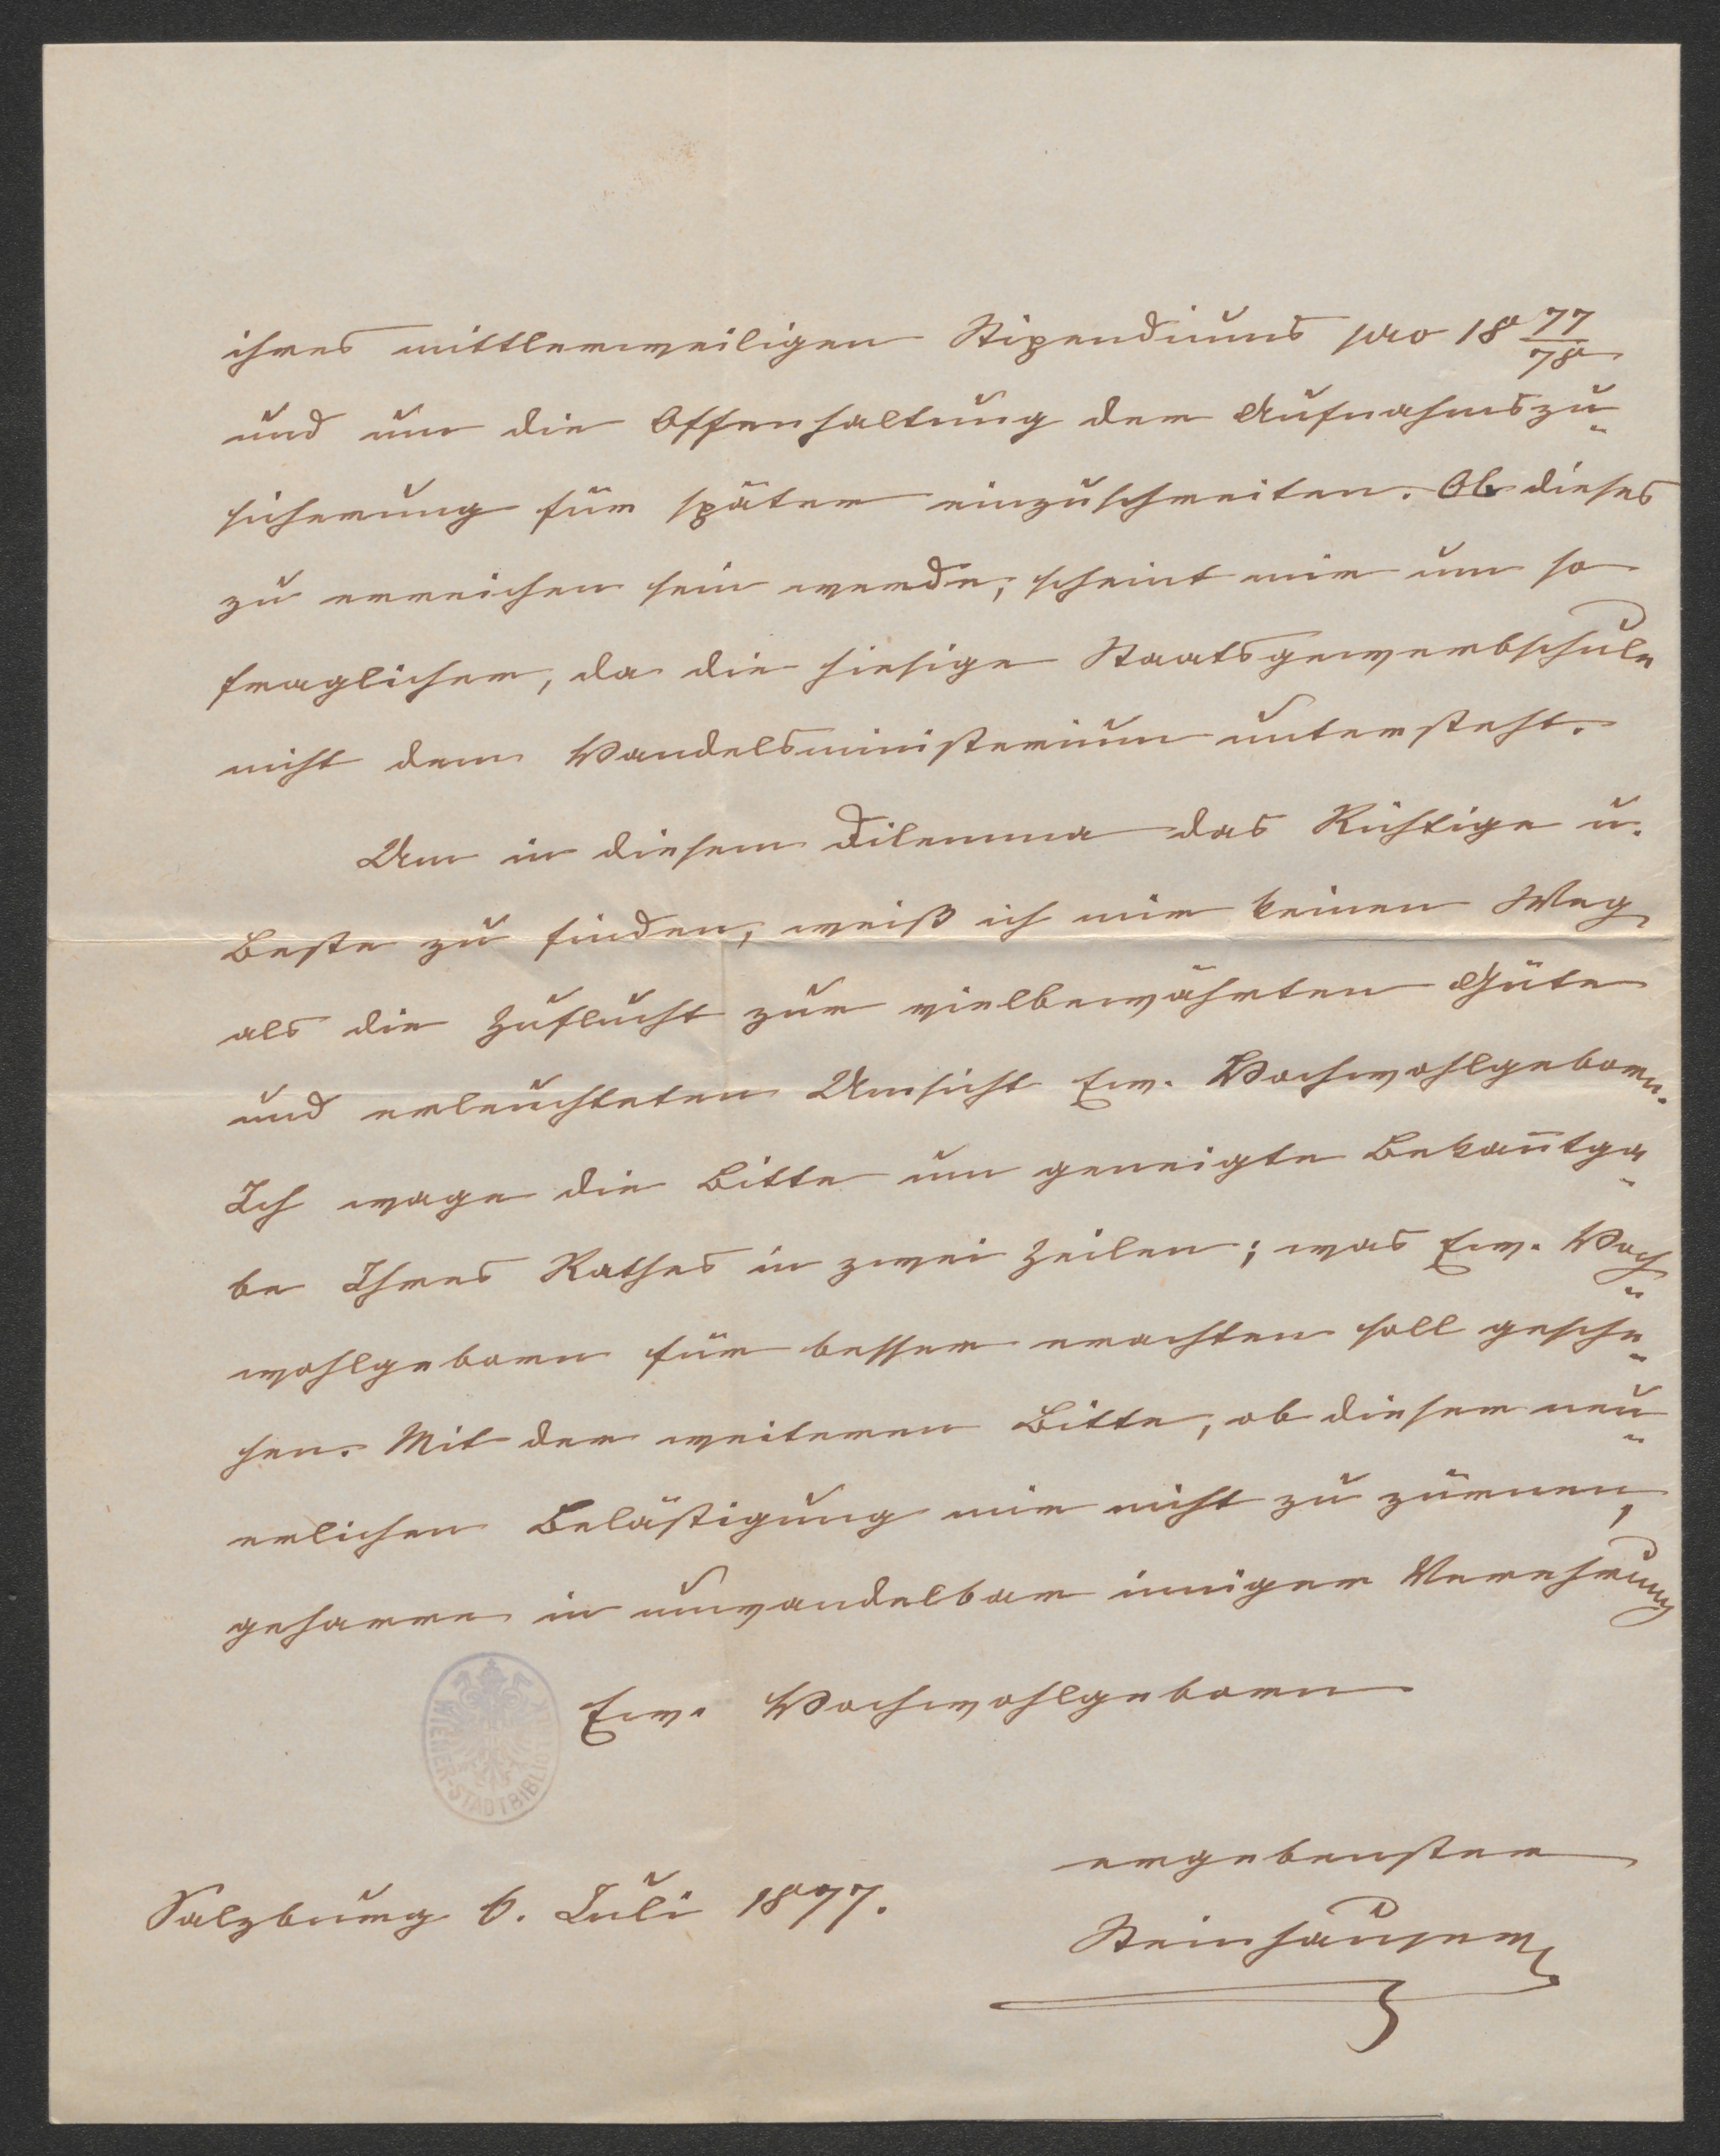 ihres mittlerweiligen Stipendiums pro 18 77/78
und um die Offenhaltung der Aufnahmszu„
sicherung für später einzuschreiten. Ob dieses
zu erreichen sein werde, scheint mir um so
fraglicher, da die hiesige Staatsgewerbschule
nicht dem Handelsministerium untersteht.
Um in diesem Dilemma das Richtige u.
Beste zu finden, weiß ich mir keinen Weg
als die Zuflucht zur vielbewährten Güte
und erleuchteten Umsicht Ew. Hochwohlgeborn.
Ich wage die Bitte um geneigte Bekan̅tga„
be Ihres Rathes in zwei Zeilen; was Ew. Hoch„
wohlgeborn für besser erachten soll gesche„
hen. Mit der weiteren Bitte, ob dieser neu„
erlichen Belästigung mir nicht zu zürnen,
geharre in unwandelbar inniger Verehrung
Ew. Hochwohlgeborn
ergebenster
Salzburg 6. Juli 1877.
Steinhauser
WIENER-STADTBIBLIOTHEK